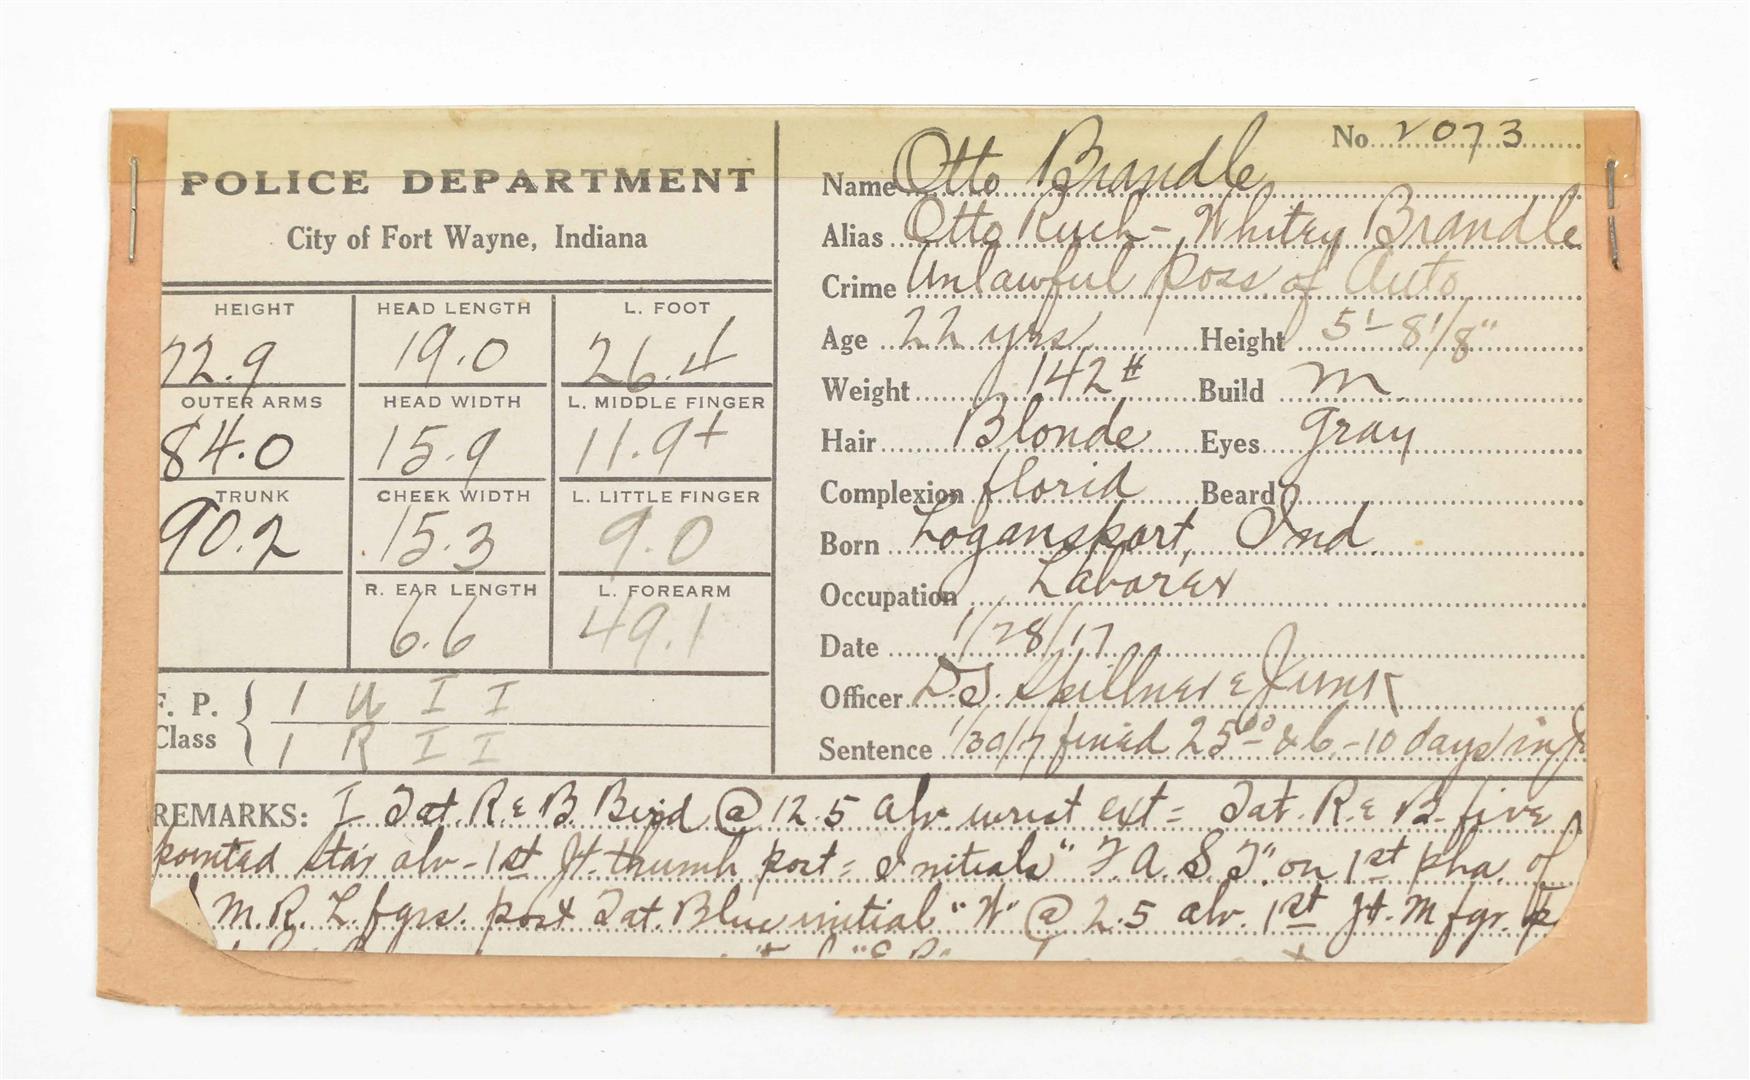 No. 2073
POLICE DEPARTMENT
City of Fort Wayne, Indiana
HEIGHT HEAD LENGTH L. FOOT
72.9 19.0 26.4
OUTER ARMS HEAD WIDTH L. MIDDLE FINGER
84.0 15.9 11.9+
TRUNK CHEEK WIDTH L. LITTLE FINGER
90.2 15.3 9.0
R. EAR LENGTH L. FOREARM
6.6 49.1
F. P. 1 U I I
Class 1 R I I
Name Otto Brandle
Alias Otto Ruch - Whitey Brandle
Crime Unlawful poss. of Auto
Age 22 yrs Height 5'-8 1/8"
Weight 142# Build m
Hair Blonde Eyes gray
Complexion florid Beard
Born Logansport, Ind.
Occupation Laborer
Date 1/28/17
Officer D.S. Spillner & Junk
Sentence 1/30/17 fined 25 00 & c - 10 days in
REMARKS: I Tat. R & B. Bird @ 12.5 abv. wrist ext = Tat. R & B. five
pointed star abv - 1st Jt. thumb post = Initials "F.A.S.T." on 1st pha of
M.R.L. fgrs. post Tat. Blue initial "W" @ 2.5 abv. 1st Jt. M fgr.